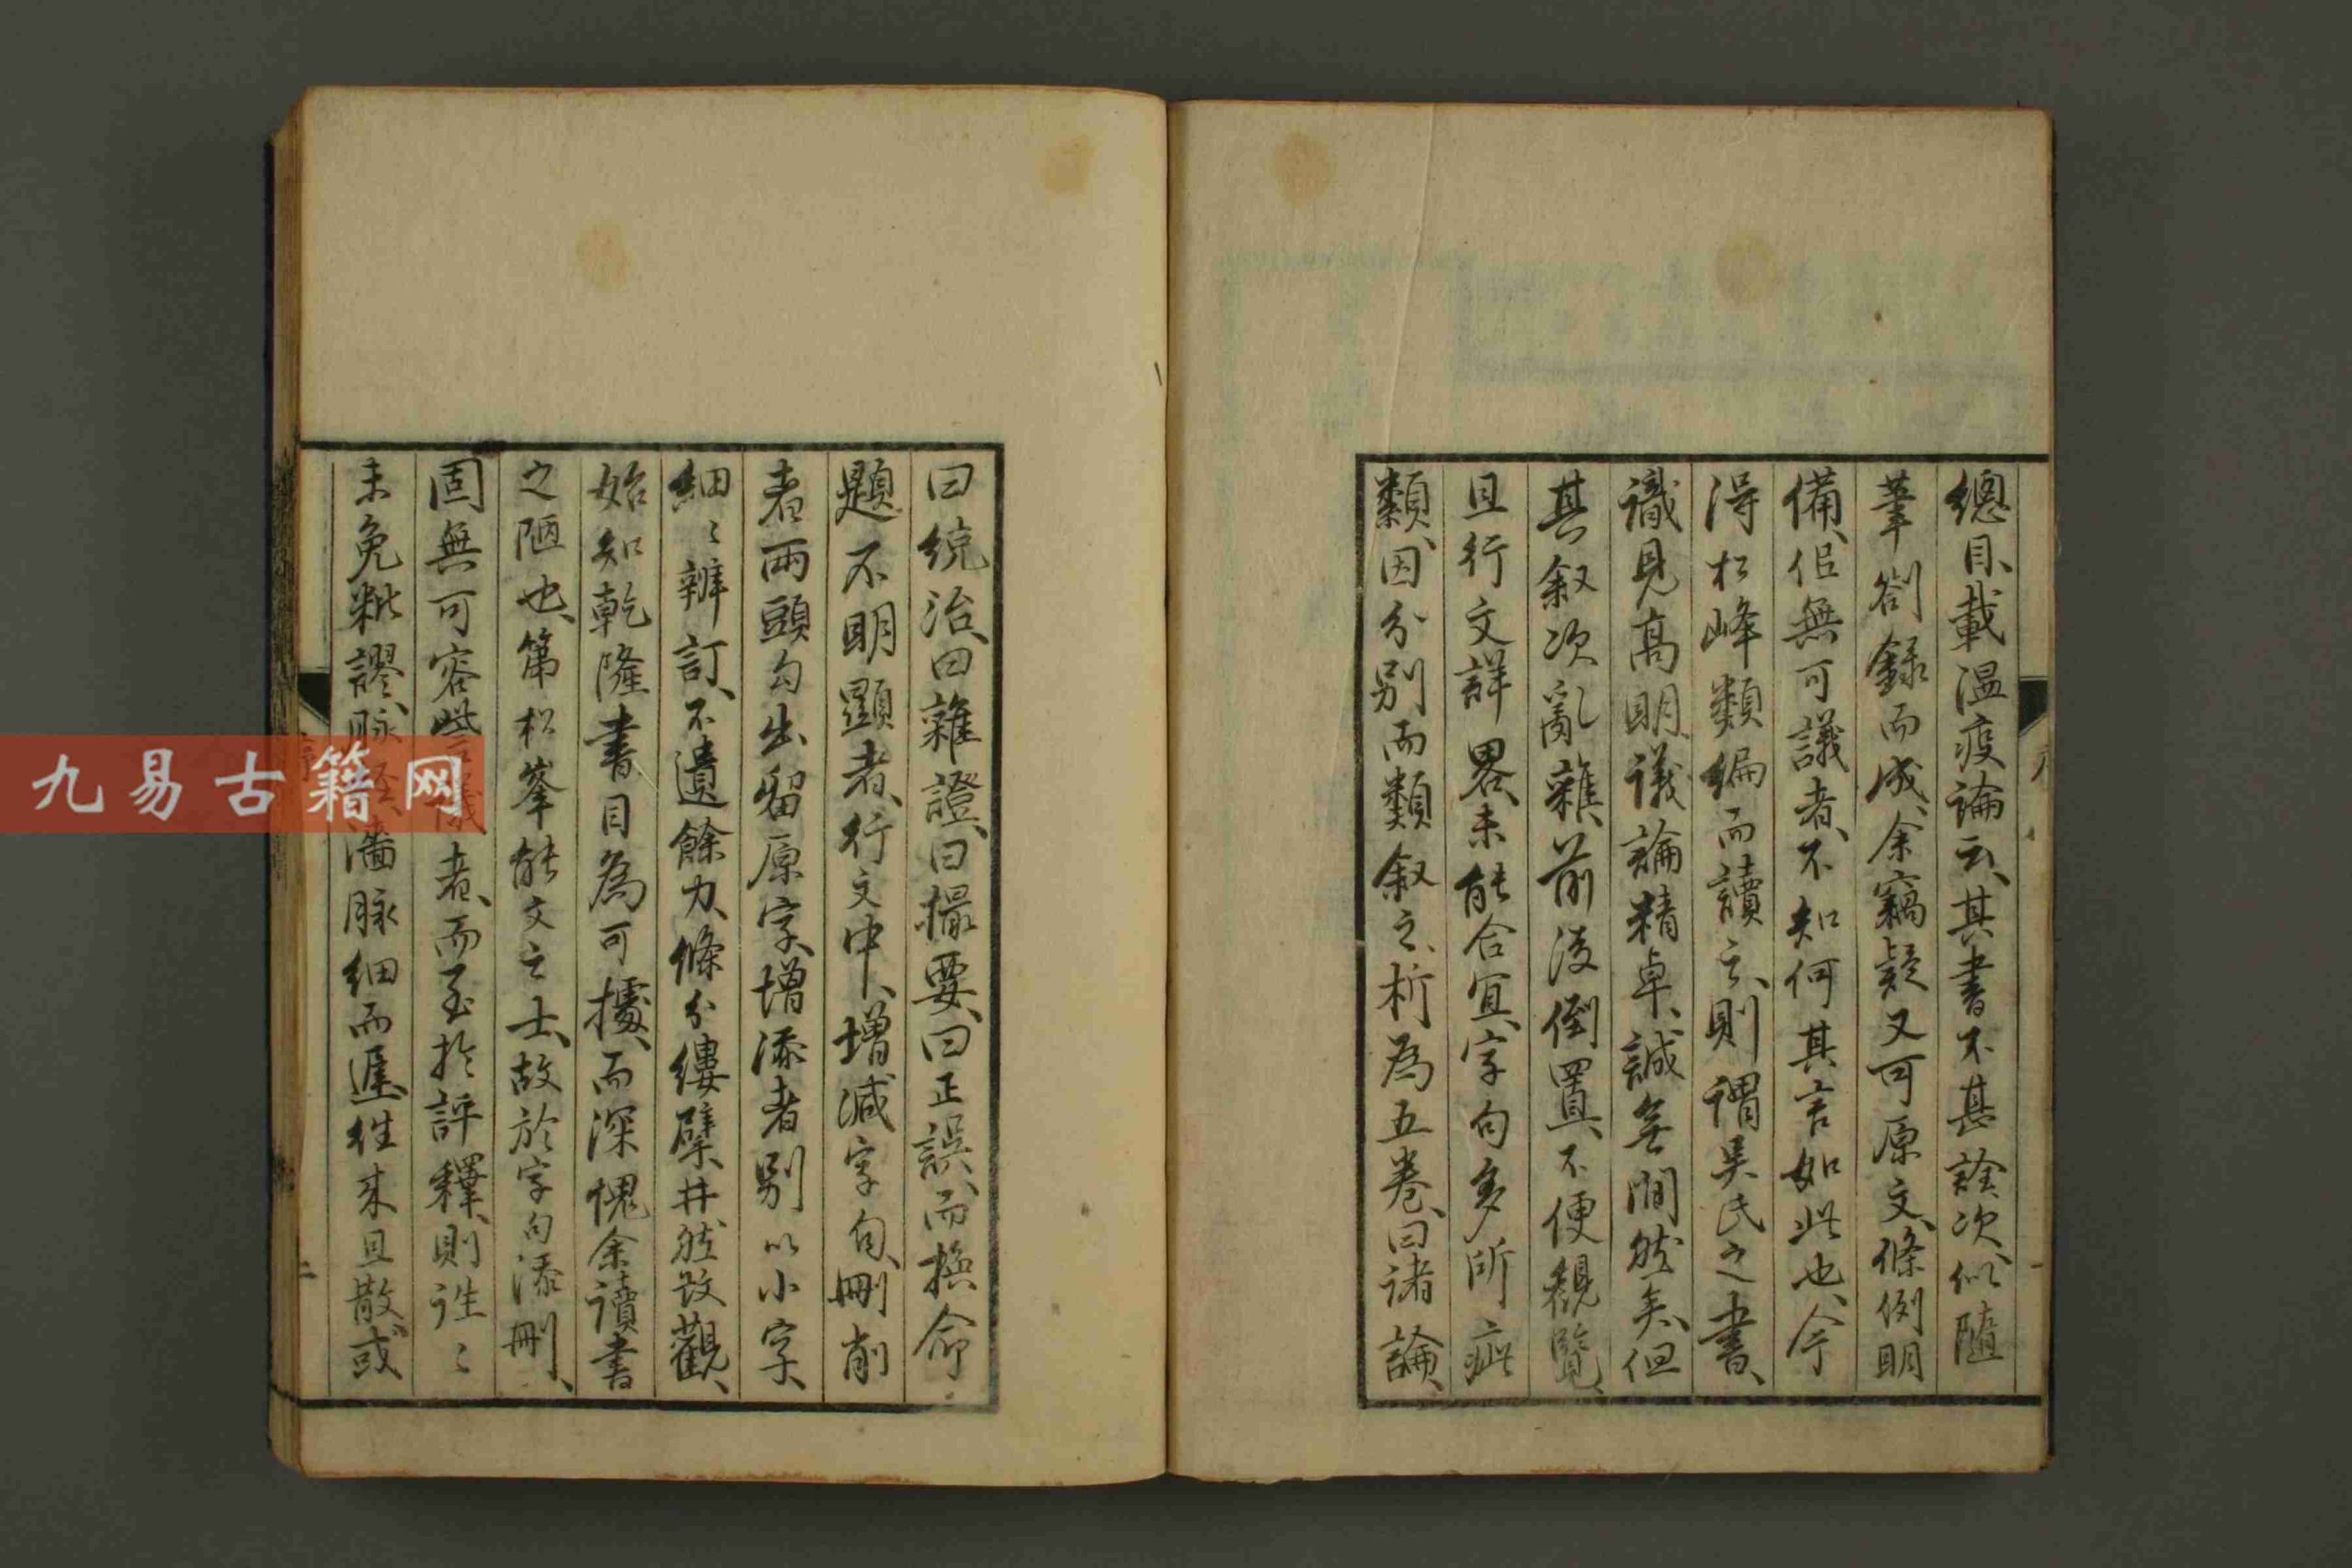 總目、載溫疫論云、其書不甚詮次、似隨
筆劄錄而成、余竊疑又可原文、條例明
備、似無可議者、不知何其言如此也、今
得松峰類編而讀之、則謂吳氏之書、
識見高明、議論精卓、誠無間然矣、但
其叙次亂雜、前後倒置、不便觀覽、
且行文詳畧、未能合宜、字句多所疵
類、因分別而類叙之、析為五卷、曰諸論、
曰統治、曰雜證、曰撮要、曰正誤、而換命
題不明顯者、行文中、增減字句、刪削
者兩頭勾出留原字、增添者別以小字、
細〻辨訂、不遺餘力、條分縷擘、井然改觀、
始知乾隆書目為可據、而深愧余讀書
之陋也、第松峯能文之士、故於字句添刪、
固無可容議者、而至於評釋、則往〻
未免粃謬、脉濇脉細而遲、往来且散、或
二
九易古籍网